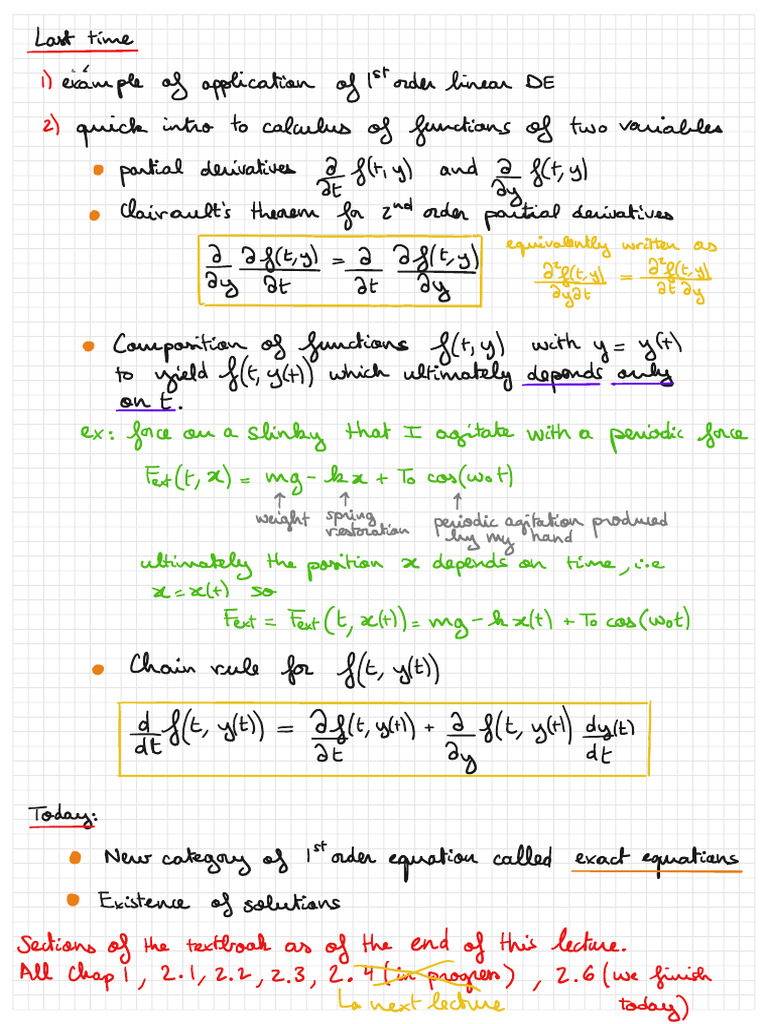 Last time
1) example of application of 1st order linear DE
2) quick intro to calculus of functions of two variables
• partial derivatives ∂/∂t f(t,y) and ∂/∂y f(t,y)
• Clairault's theorem for 2nd order partial derivatives
∂/∂y ∂f(t,y)/∂t = ∂/∂t ∂f(t,y)/∂y
equivalently written as
∂²f(t,y)/∂y∂t = ∂²f(t,y)/∂t∂y
• Composition of functions f(t,y) with y = y(t)
to yield f(t, y(t)) which ultimately depends only
on t.
ex: force on a slinky that I agitate with a periodic force
Fext(t, x) = mg - kx + T0 cos(ω0t)
↑ weight ↑ spring restoration ↑ periodic agitation produced by my hand
ultimately the position x depends on time, i.e
x = x(t) so
Fext = Fext(t, x(t)) = mg - k x(t) + T0 cos(ω0t)
• Chain rule for f(t, y(t))
d/dt f(t, y(t)) = ∂f/∂t (t, y(t)) + ∂/∂y f(t, y(t)) dy(t)/dt
Today:
• New category of 1st order equation called exact equations
• Existence of solutions
Sections of the textbook as of the end of this lecture.
All Chap 1, 2.1, 2.2, 2.3, 2.4 (in progress), 2.6 (we finish
↳ next lecture today)